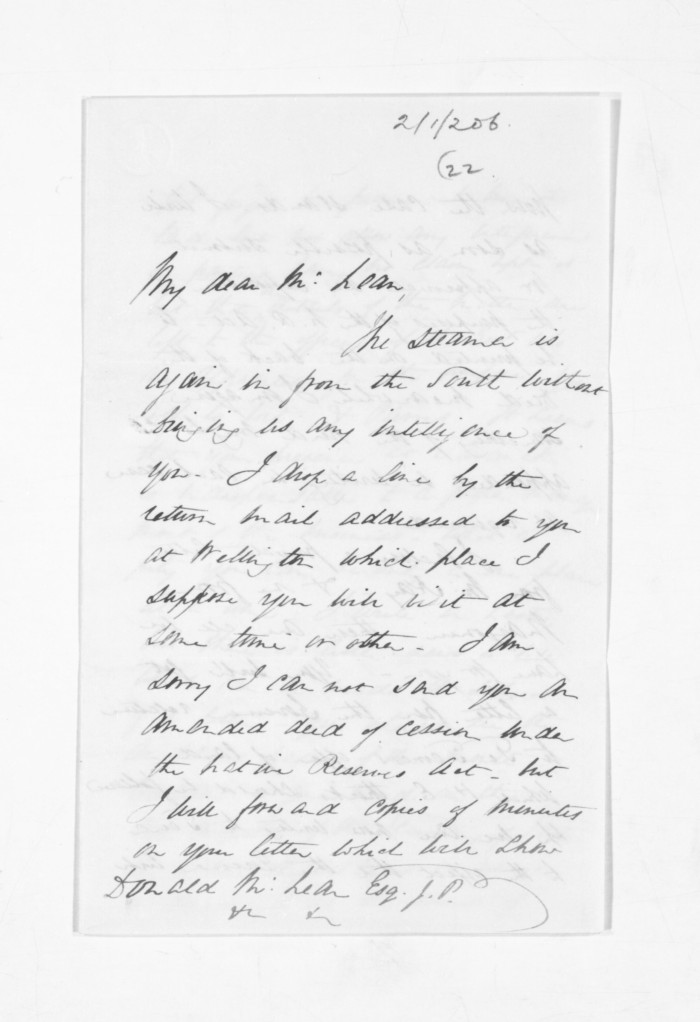 2/1/206.
(22.
My dear Mc. Lean,
The steamer is
again in from the South without
bringing us any intelligence of
you - I drop a line by the
return mail addressed to you
at Wellington which place I
suppose you will visit at
some time or other - I am
sorry I can not send you an
amended deed of cession under
the Native Reserves Act - but
I will forward copies of minutes
on your letter which will show
Donald Mc. Lean Esq. J.P.
&c &c